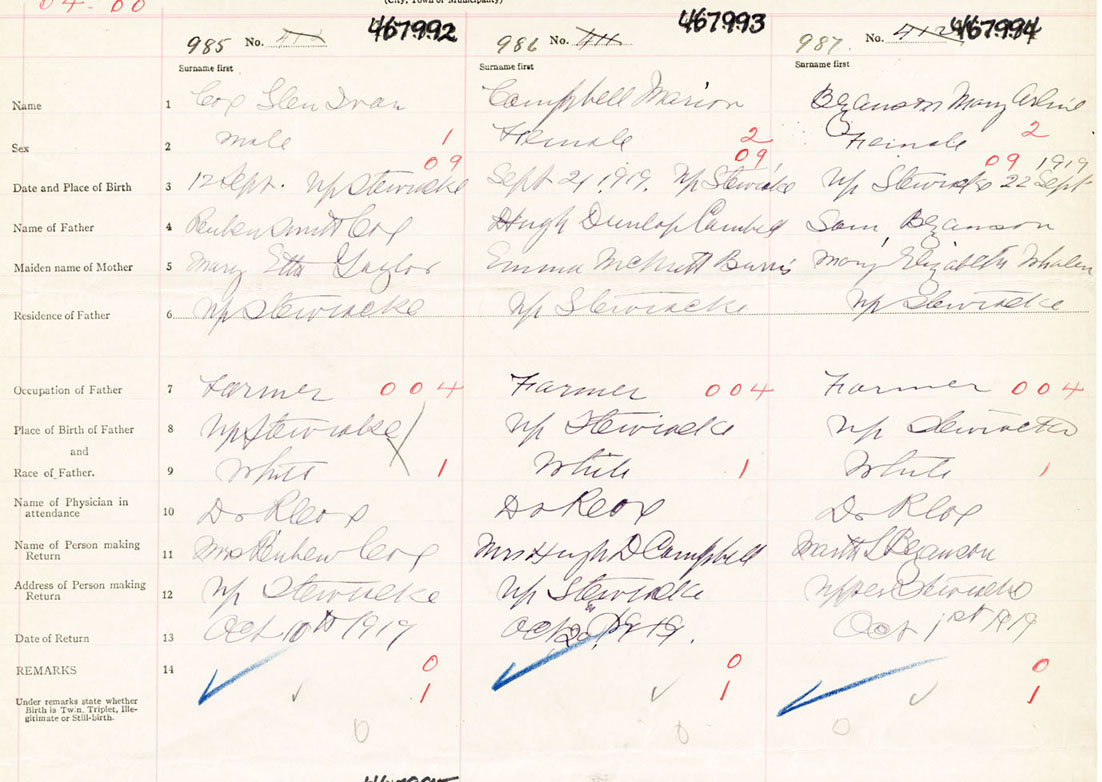 04-00
(City, Town or Municipality)
985 No. 410 467992 986 No. 411 467993 987. No. 412 467994
Surname first Surname first Surname first
Name 1 Cox Glen Ivan Campbell Marion Beganson Mary
Sex 2 male 1 Female 2 Female 2
09 09 09 1919
Date and Place of Birth 3 12 Sept. Up Stewiacke Sept 21, 1919. Up Stewiacke Up Stewiacke 22 Sept
Name of Father 4 Reuben Smith Cox Hugh Dunlop Campbell Sam Beganson
Maiden name of Mother 5 Mary Etta Taylor Emma Burris Mary Elizabeth Whalen
Residence of Father 6 Up Stewiacke Up Stewiacke Up Stewiacke
Occupation of Father 7 Farmer 004 Farmer 004 Farmer 004
Place of Birth of Father 8 Up Stewiacke Up Stewiacke Up Stewiacke
and
Race of Father. 9 White 1 White 1 White 1
Name of Physician in
attendance 10 Dr R Cox Dr R Cox Dr R Cox
Name of Person making
Return 11 Mrs Reuben Cox Mrs Hugh D Campbell S Beganson
Address of Person making
Return 12 Up Stewiacke Up Stewiacke Upper Stewiacke
Date of Return 13 Oct 10th 1919 Oct 1919. Oct 1st 1919
REMARKS 14 0 0 0
Under remarks state whether
Birth is Twin, Triplet, Ille-
gitimate or Still-birth. 1 1 1
0 0 0